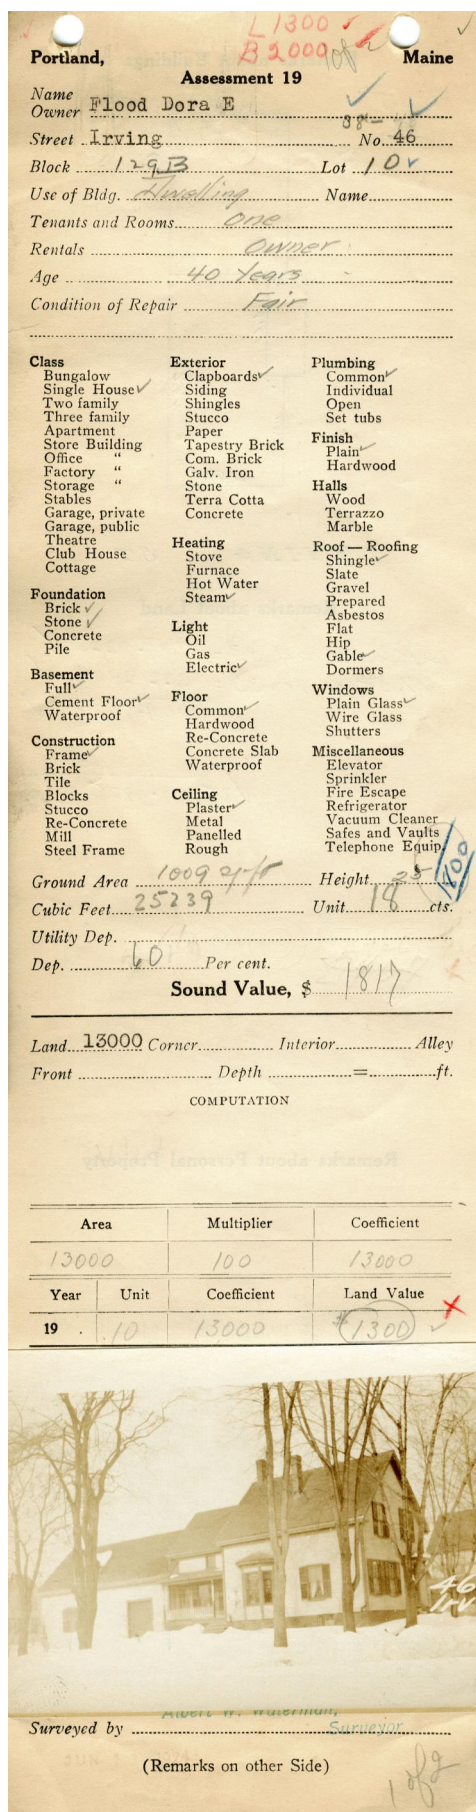 L 1300
B 2000 1 of 2
Portland, Maine
Assessment 19
Name
Owner Flood Dora E
38-
Street Irving No. 46
Block 129B Lot 10
Use of Bldg. Dwelling Name
Tenants and Rooms one
Rentals Owner
Age 40 Years
Condition of Repair Fair
Class
Bungalow
Single House ✓
Two family
Three family
Apartment
Store Building
Office "
Factory "
Storage "
Stables
Garage, private
Garage, public
Theatre
Club House
Cottage
Foundation
Brick ✓
Stone ✓
Concrete
Pile
Basement
Full ✓
Cement Floor ✓
Waterproof
Construction
Frame ✓
Brick
Tile
Blocks
Stucco
Re-Concrete
Mill
Steel Frame
Exterior
Clapboards ✓
Siding
Shingles
Stucco
Paper
Tapestry Brick
Com. Brick
Galv. Iron
Stone
Terra Cotta
Concrete
Heating
Stove
Furnace
Hot Water
Steam ✓
Light
Oil
Gas
Electric ✓
Floor
Common ✓
Hardwood
Re-Concrete
Concrete Slab
Waterproof
Ceiling
Plaster ✓
Metal
Panelled
Rough
Plumbing
Common ✓
Individual
Open
Set tubs
Finish
Plain ✓
Hardwood
Halls
Wood
Terrazzo
Marble
Roof — Roofing
Shingle ✓
Slate
Gravel
Prepared
Asbestos
Flat
Hip
Gable ✓
Dormers
Windows
Plain Glass ✓
Wire Glass
Shutters
Miscellaneous
Elevator
Sprinkler
Fire Escape
Refrigerator
Vacuum Cleaner
Safes and Vaults
Telephone Equip.
Ground Area 1009 Height 25
Cubic Feet 25239 Unit 18 cts.
Utility Dep.
Dep. 60 Per cent.
Sound Value, $ 1817
Land 13000 Corner Interior Alley
Front Depth = ft.
COMPUTATION
Area Multiplier Coefficient
13000 100 13000
Year Unit Coefficient Land Value
19 . .10 13000 $1300
46
Irv
Albert W. Waterman,
Surveyed by Surveyor
(Remarks on other Side)
1 of 2